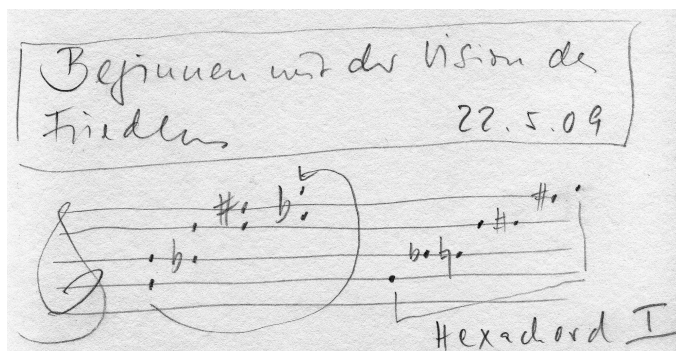 Beginnen mit der Vision des
Friedens 22.5.09
Hexachord I